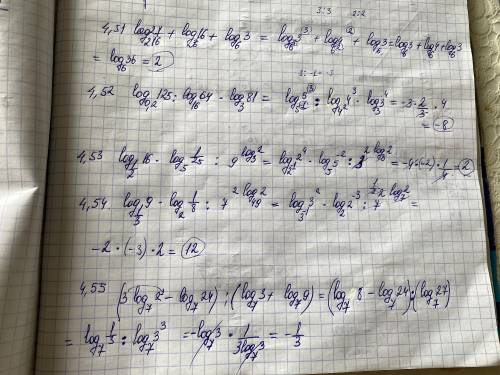 3:3 2:2
4,51 log₂₁₆27 + log₃₆16 + log₆3 = log₆³3³ + log₆²4² + log₆3 = log₆3 + log₆4 + log₆3
= log₆36 = 2
4,52 log₀,₂125 : log₁₆64 · log₃81 = log₅₋₁5³ : log₄²4³ · log₃3⁴ = -3 · 2/3 · 4
= -8
4,53 log₁/₂16 · log₅1/25 : 9^log₃2 = log₂₋₁2⁴ · log₅5⁻² : 3^2log₃2 = -4·(-2)·1/4 = 2
4,54 log₁/₃9 · log₂1/8 : 7^2log₄₉2 = log₃₋₁3² · log₂2⁻³ : 7^1/2·2log₇2 =
-2 · (-3) · 2 = 12
4,55 (3log₇2 - log₇24) : (log₇3 + log₇9) = (log₇8 - log₇24) : (log₇27)
= log₇1/3 : log₇3³ = -log₇3 · 1/3log₇3 = -1/3